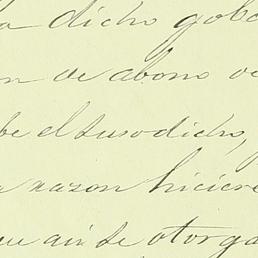 a dicho gob
on de abono o
be el susodicho,
a razon hiciere
que ainte otorga